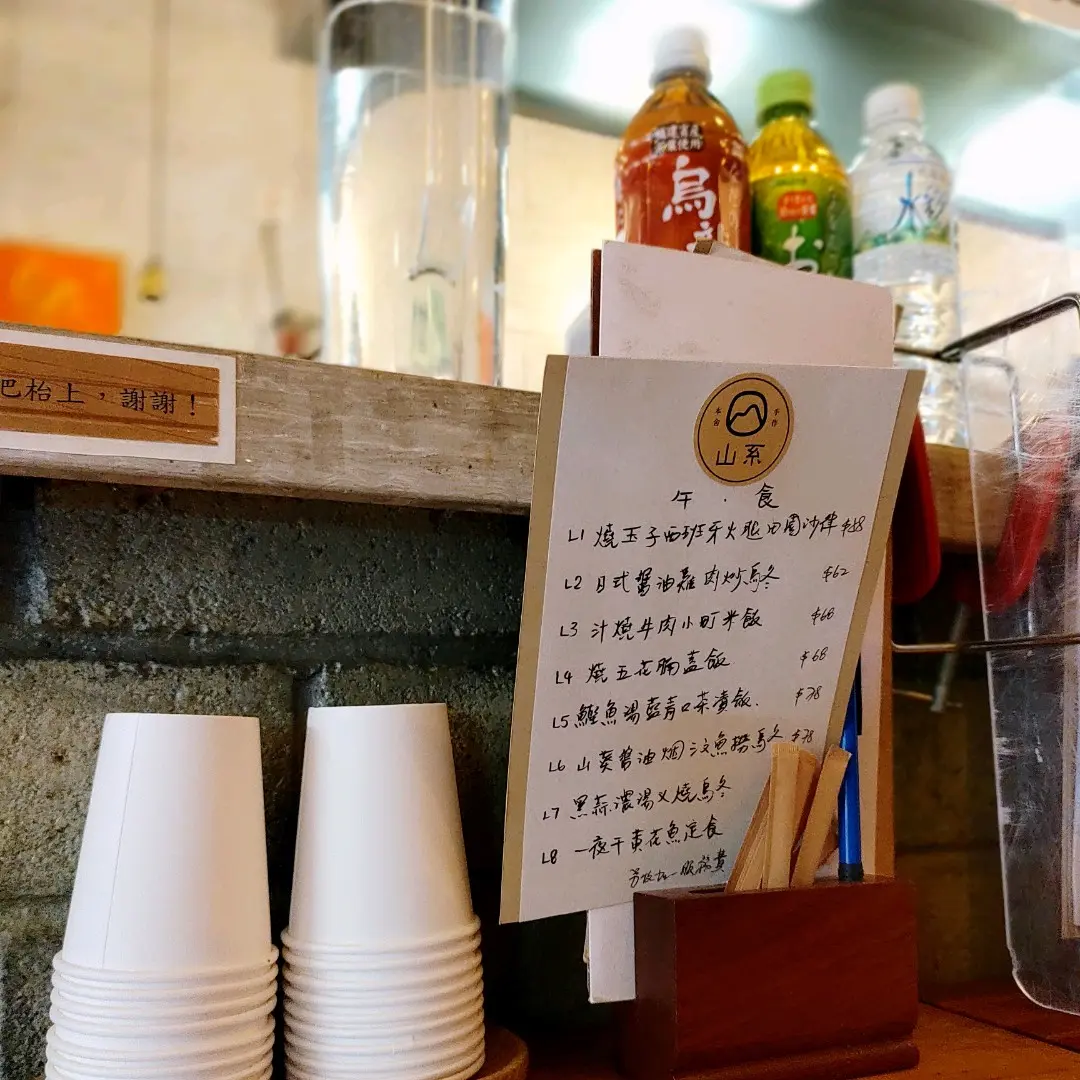 福建省産
茶葉使用
烏
お
水彩
吧枱上，謝謝！
本舍
手作
山系
午 · 食
L1 燒玉子西班牙火腿田園沙律 $58
L2 日式醬油雞肉炒烏冬 $62
L3 汁燒牛肉小町米飯 $68
L4 燒五花腩蓋飯 $68
L5 鰹魚湯藍青口茶漬飯 $78
L6 山葵醬油烟三文魚撈烏冬 $78
L7 黑蒜濃湯叉燒烏冬
L8 一夜干黃花魚定食
另設加一服務費